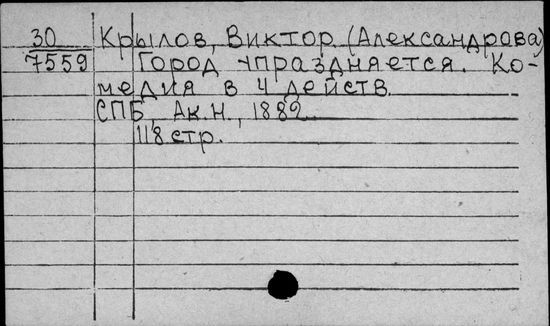 30 Крылов, Виктор (Александрова)
7559 Город упраздняется. Ко-
медия в 4 действ.
СПБ, Ак.Н., 1882.
118 стр.